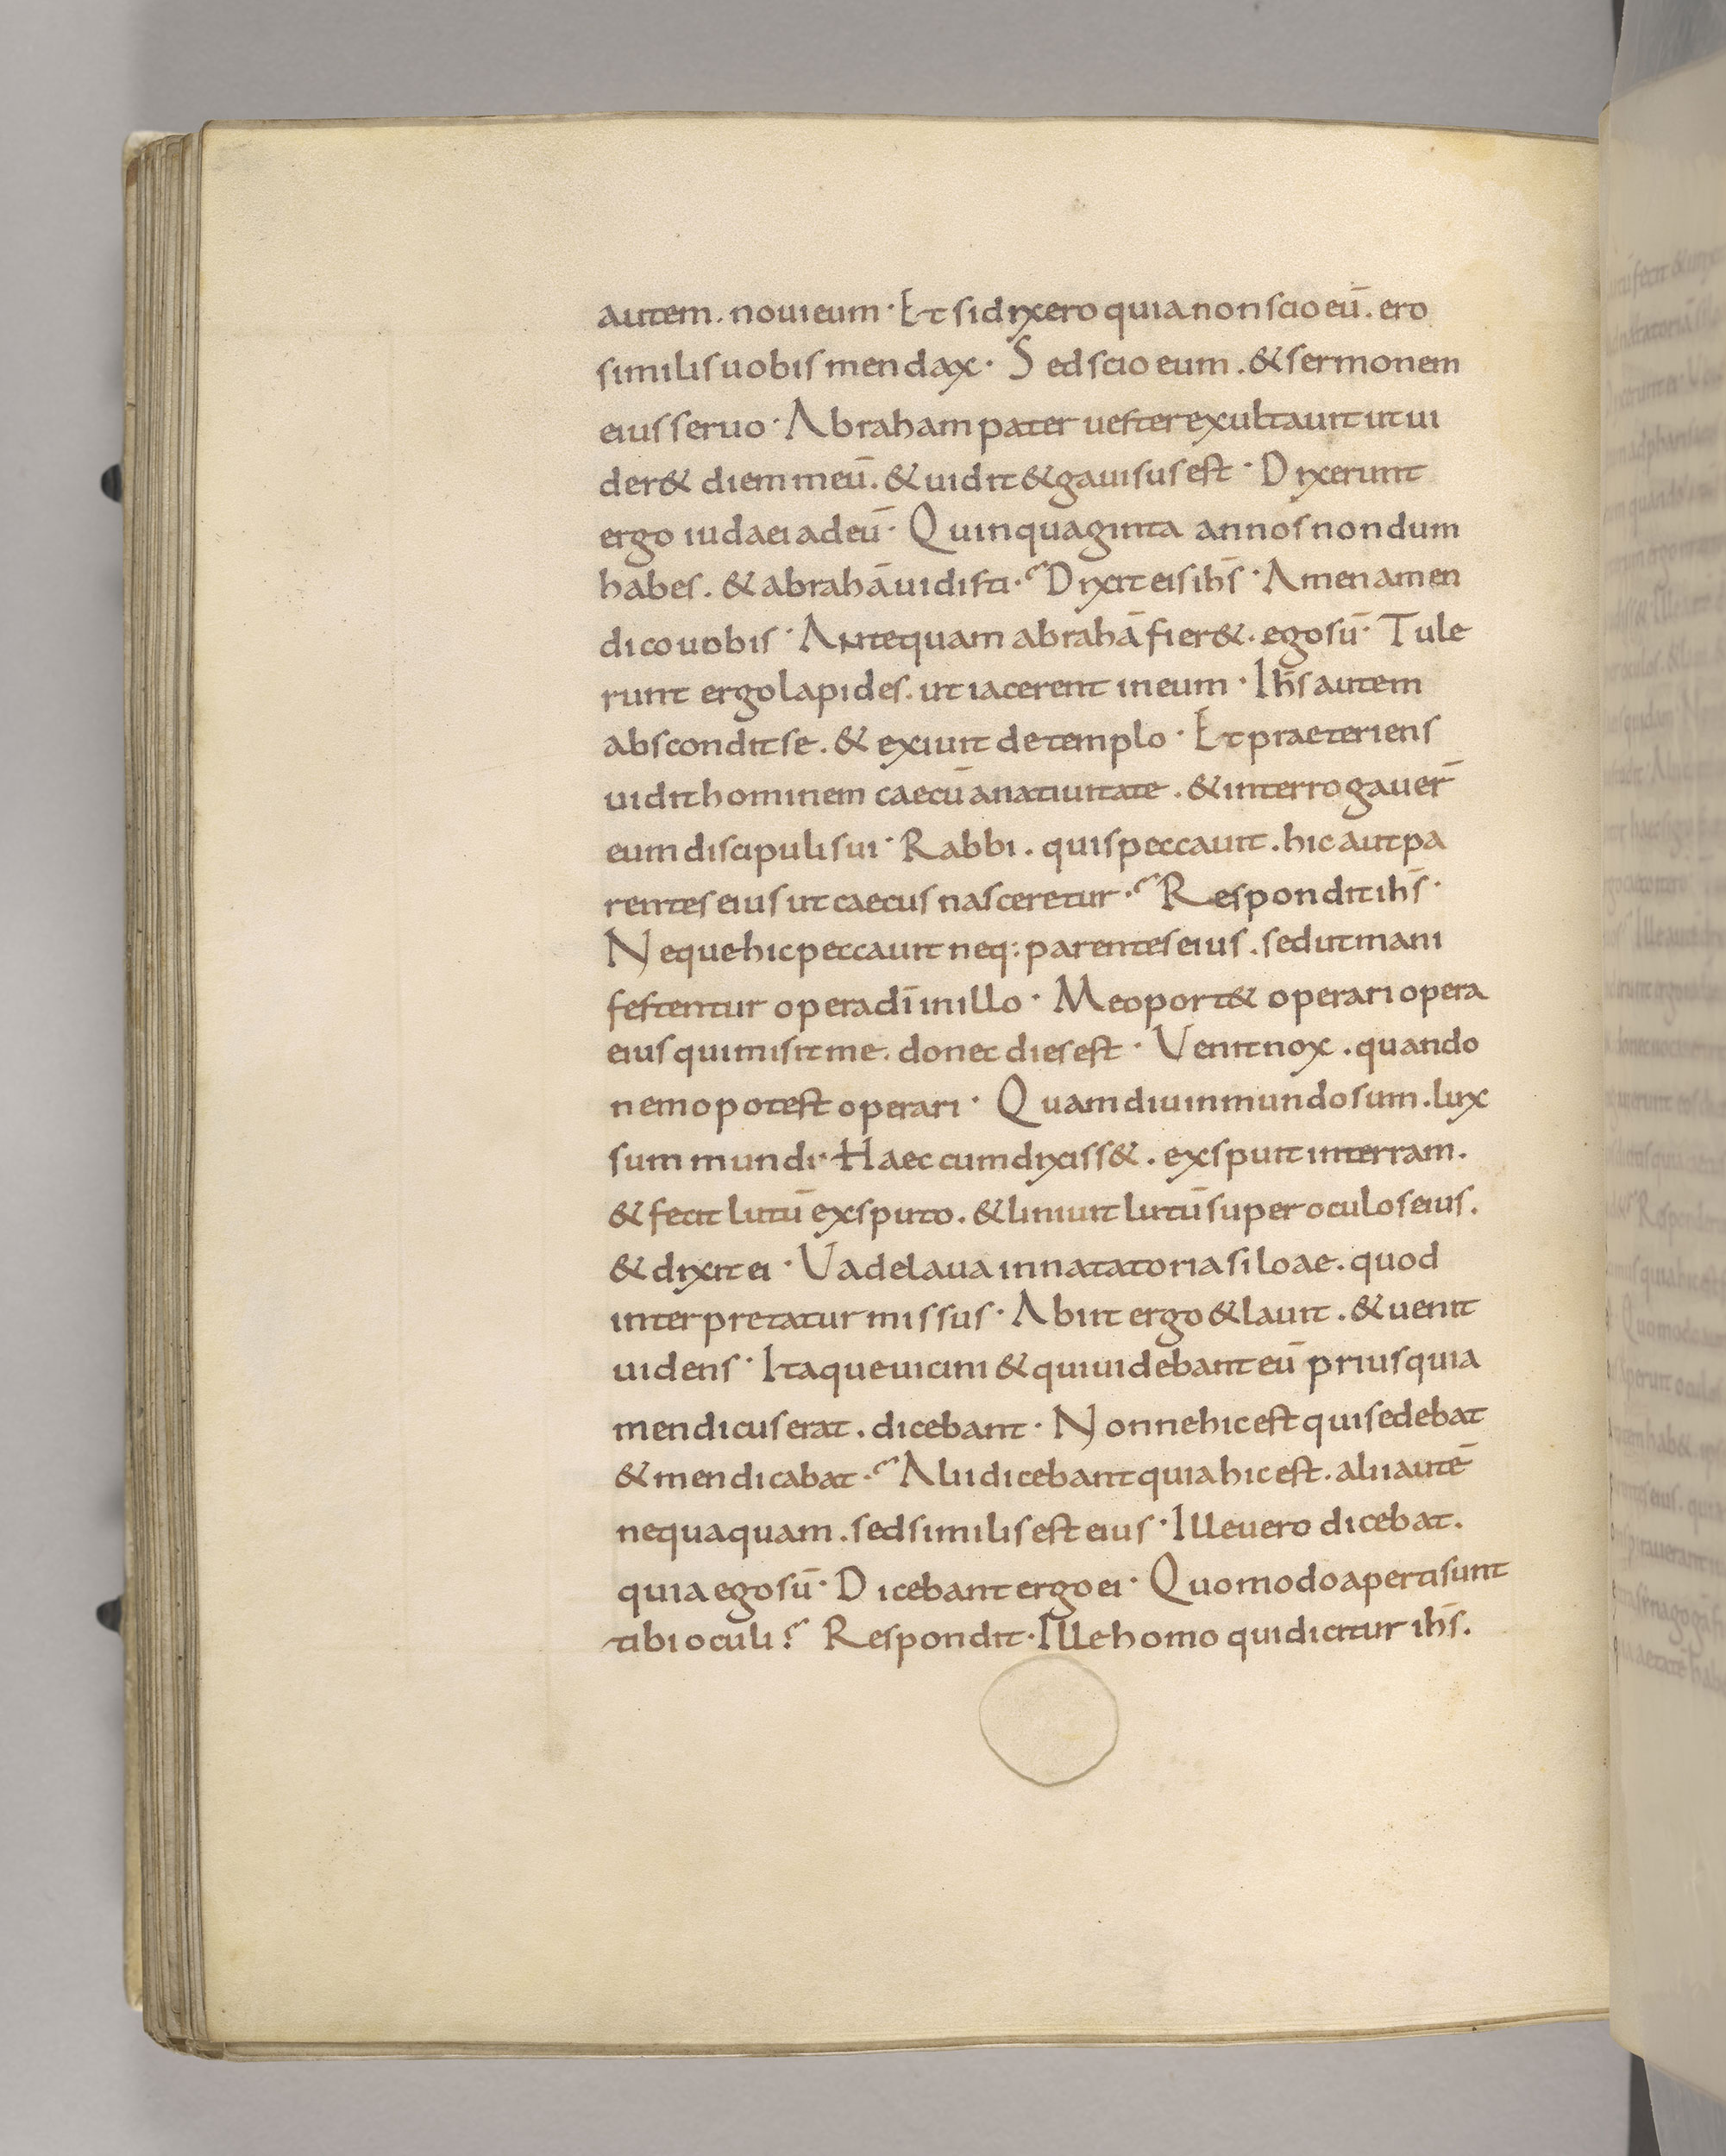 autem. noui eum· Et si dixero quia non scio eū. ero
similis uobis mendax· Sed scio eum. & sermonem
eius seruo· Abraham pater uester exultauit ut ui
der& diem meū. & uidit & gauisus est· Dixerunt
ergo iudaei ad eū· Quinquaginta annos nondum
habes. & abrahā uidisti·? Dixit eis ihs̄· Amen amen
dico uobis· Antequam abrahā fier&. ego sū· Tule
runt ergo lapides. ut iacerent in eum· Ihs̄ autem
abscondit se. & exiuit de templo· Et praeteriens
uidit hominem caecū a natiuitate. & interrogauer̄
eum discipuli sui· Rabbi. quis peccauit. hic aut pa
rentes eius ut caecus nasceretur·? Respondit ihs̄·
Neque hic peccauit neq: parentes eius. sed ut mani
festentur opera dī in illo· Me oport& operari opera
eius qui misit me. donec dies est· Venit nox. quando
nemo potest operari· Quamdiu in mundo sum. lux
sum mundi· Haec cum dixiss&. exspuit in terram.
& fecit lutū ex sputo. & liniuit lutū super oculos eius.
& dixit ei· Vade laua in natatoria siloae. quod
interpretatur missus· Abiit ergo & lauit. & uenit
uidens· Itaque uicini & qui uidebant eū prius quia
mendicus erat. dicebant· Nonne hic est qui sedebat
& mendicabat·? Alii dicebant quia hic est. alii autē
nequaquam. sed similis est eius· Ille uero dicebat.
quia ego sū· Dicebant ergo ei· Quomodo aperti sunt
tibi oculi? Respondit· Ille homo qui dicitur ihs̄.